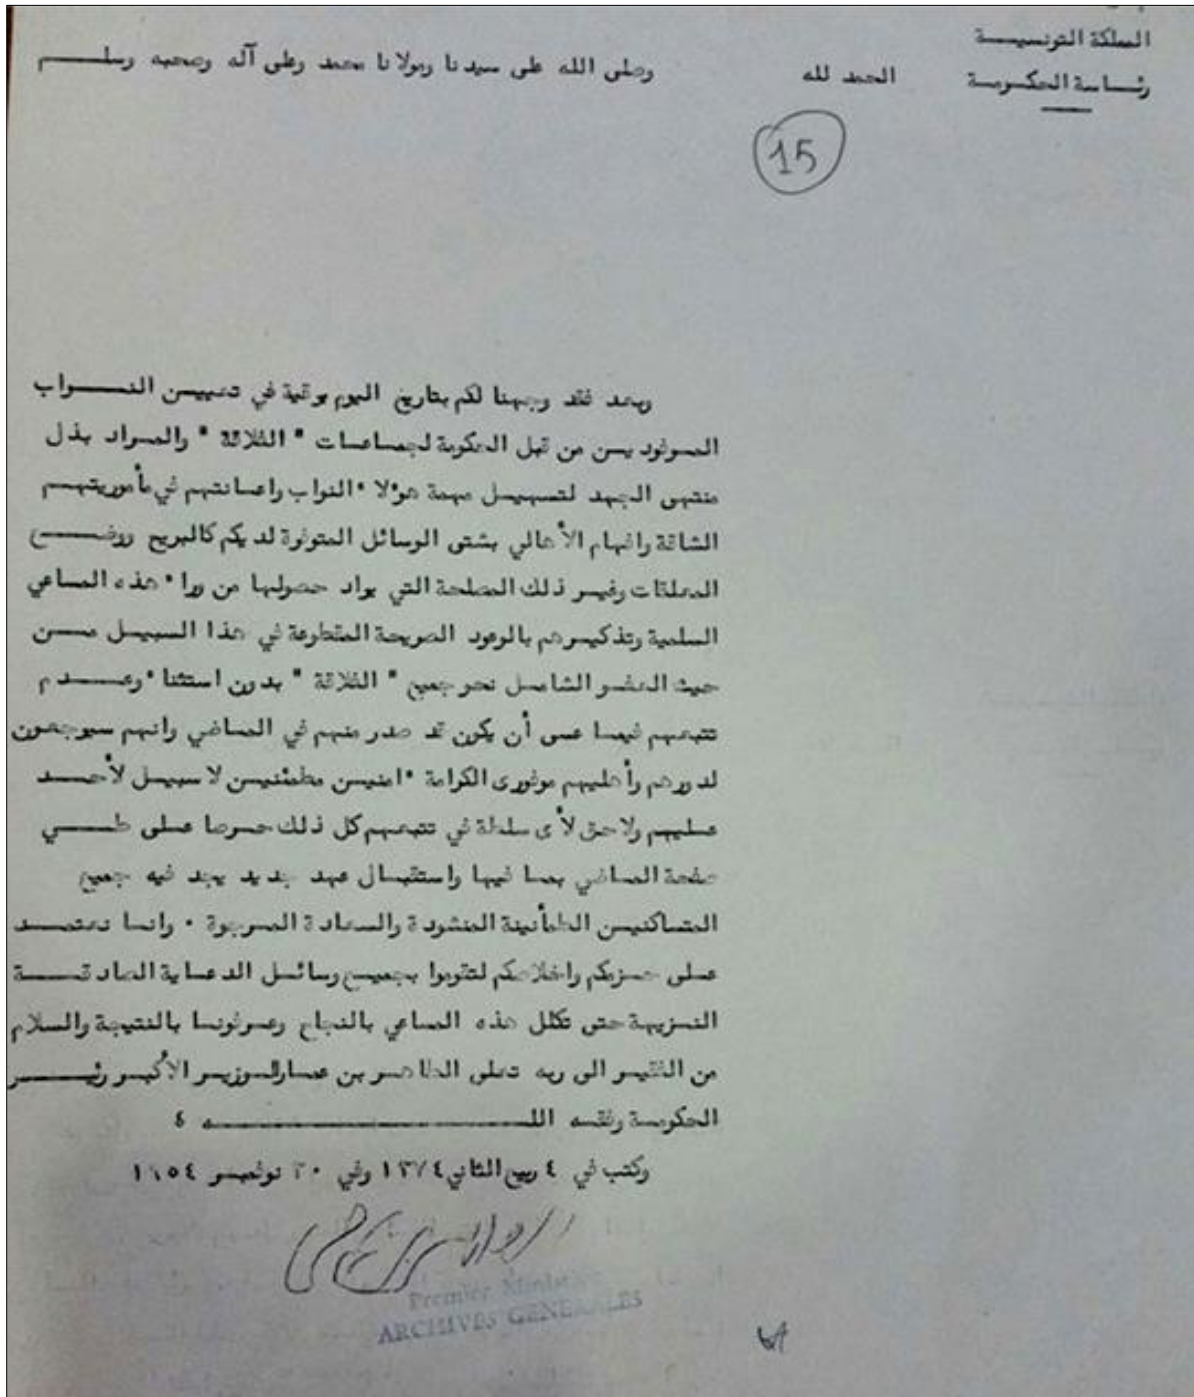 المملكة التونسيــة
رئــاسة الحكــومــة
الحمد لله
وصلى الله على سيدنا ومولانا محمد وعلى آله وصحبه وسلــــم
15
وبعد فقد وجهنا لكم بتاريخ اليوم برقية في تعييــن النـــواب
المـوفوديــن من قبل الحكومة لجمــاعــات " الفلاقة " والمــراد بذل
منتهى الجهد لتسهيــل مهمة هؤلاء النواب واعــانتهم في مأموريتهــم
الشاقة وافهام الأهالي بشتى الوسائل المتوفرة لديكم كالبريح ووضــــع
المعلقات وغيــر ذلك المصلحة التي يراد حصولها من وراء هذه المساعي
السلمية وتذكيــرهم بالوعود الصريحة المقطوعة في هذا السبيــل مــن
حيث العفــو الشامــل نحو جميع " الفلاقة " بدون استثناء وعــــدم
تتبعهم فيمــا عسى أن يكون قد صدر منهم في المــاضي وانهم سيرجعــون
لدورهم وأهليهم موفورى الكرامة ءامنيــن مطمئنيــن لا سبيــل لأحــــد
عــليهم ولا حق لأى سلطة في تتبعهم كل ذلك حــرصا عــلى طــــي
صفحة المــاضي بمــا فيها واستقبــال عهد جديد يجد فيه جميع
المتساكنيــن الطمأنينة المنشودة والسعــادة المــرجوة . وانــا نعتمــــد
عــلى حــزمكم واخلاصكم لتقوموا بجميــع وسائــل الدعــاية الصادقــــة
النــزيهة حتى تكلل هذه المساعي بالنجاح وعــرفونــا بالنتيجة والسلام
من الفقيــر الى ربه تعلى الطاهــر بن عمــار الــوزيــر الأكبــر رئيــــر
الحكومــة وفقــه اللــــــــه ٤
وكتب في ٤ ربيع الثاني ١٣٧٤ وفي ٣٠ نوفمبــر ١٩٥٤
Premier Ministère
ARCHIVES GENERALES